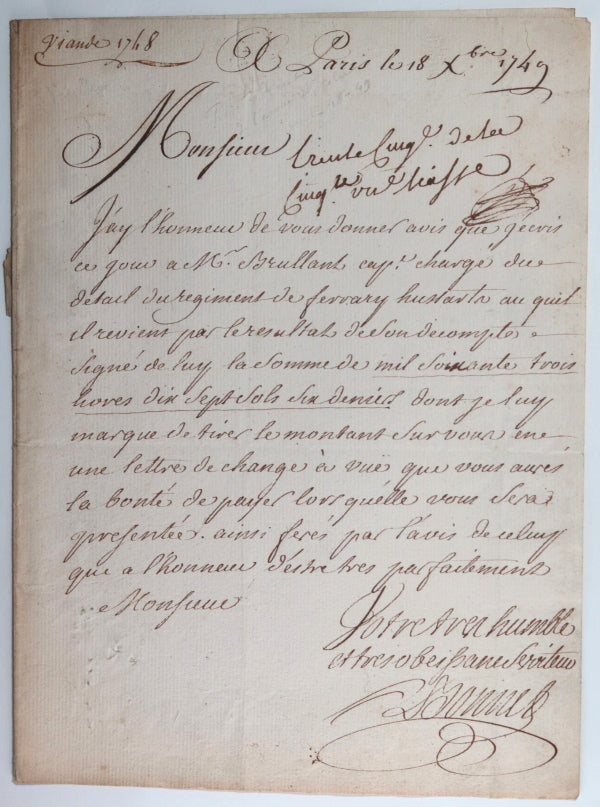 Viande 1748
A Paris le 18 Xbre 1749
Monsieur
trente Cinqe. de la
Cinqe. liasse
J'ay l'honneur de vous donner avis que j'ecris
ce jour a Mr. Brullant capne. chargé du
detail du regiment de ferrary hussarts au quel
il revient par le resultat de son decompte
signé de luy la somme de mil soixante trois
livres dix sept sols six deniers dont je luy
marque de tirer le montant sur vous en
une lettre de change à vuë que vous aurés
la bonté de payer lors qu'elle vous sera
presentée. ainsi ferés par l'avis de celuy
que a l'honneur d'estre tres parfaitement
Monsieur
Votre tres humble
et tres obeissant serviteur